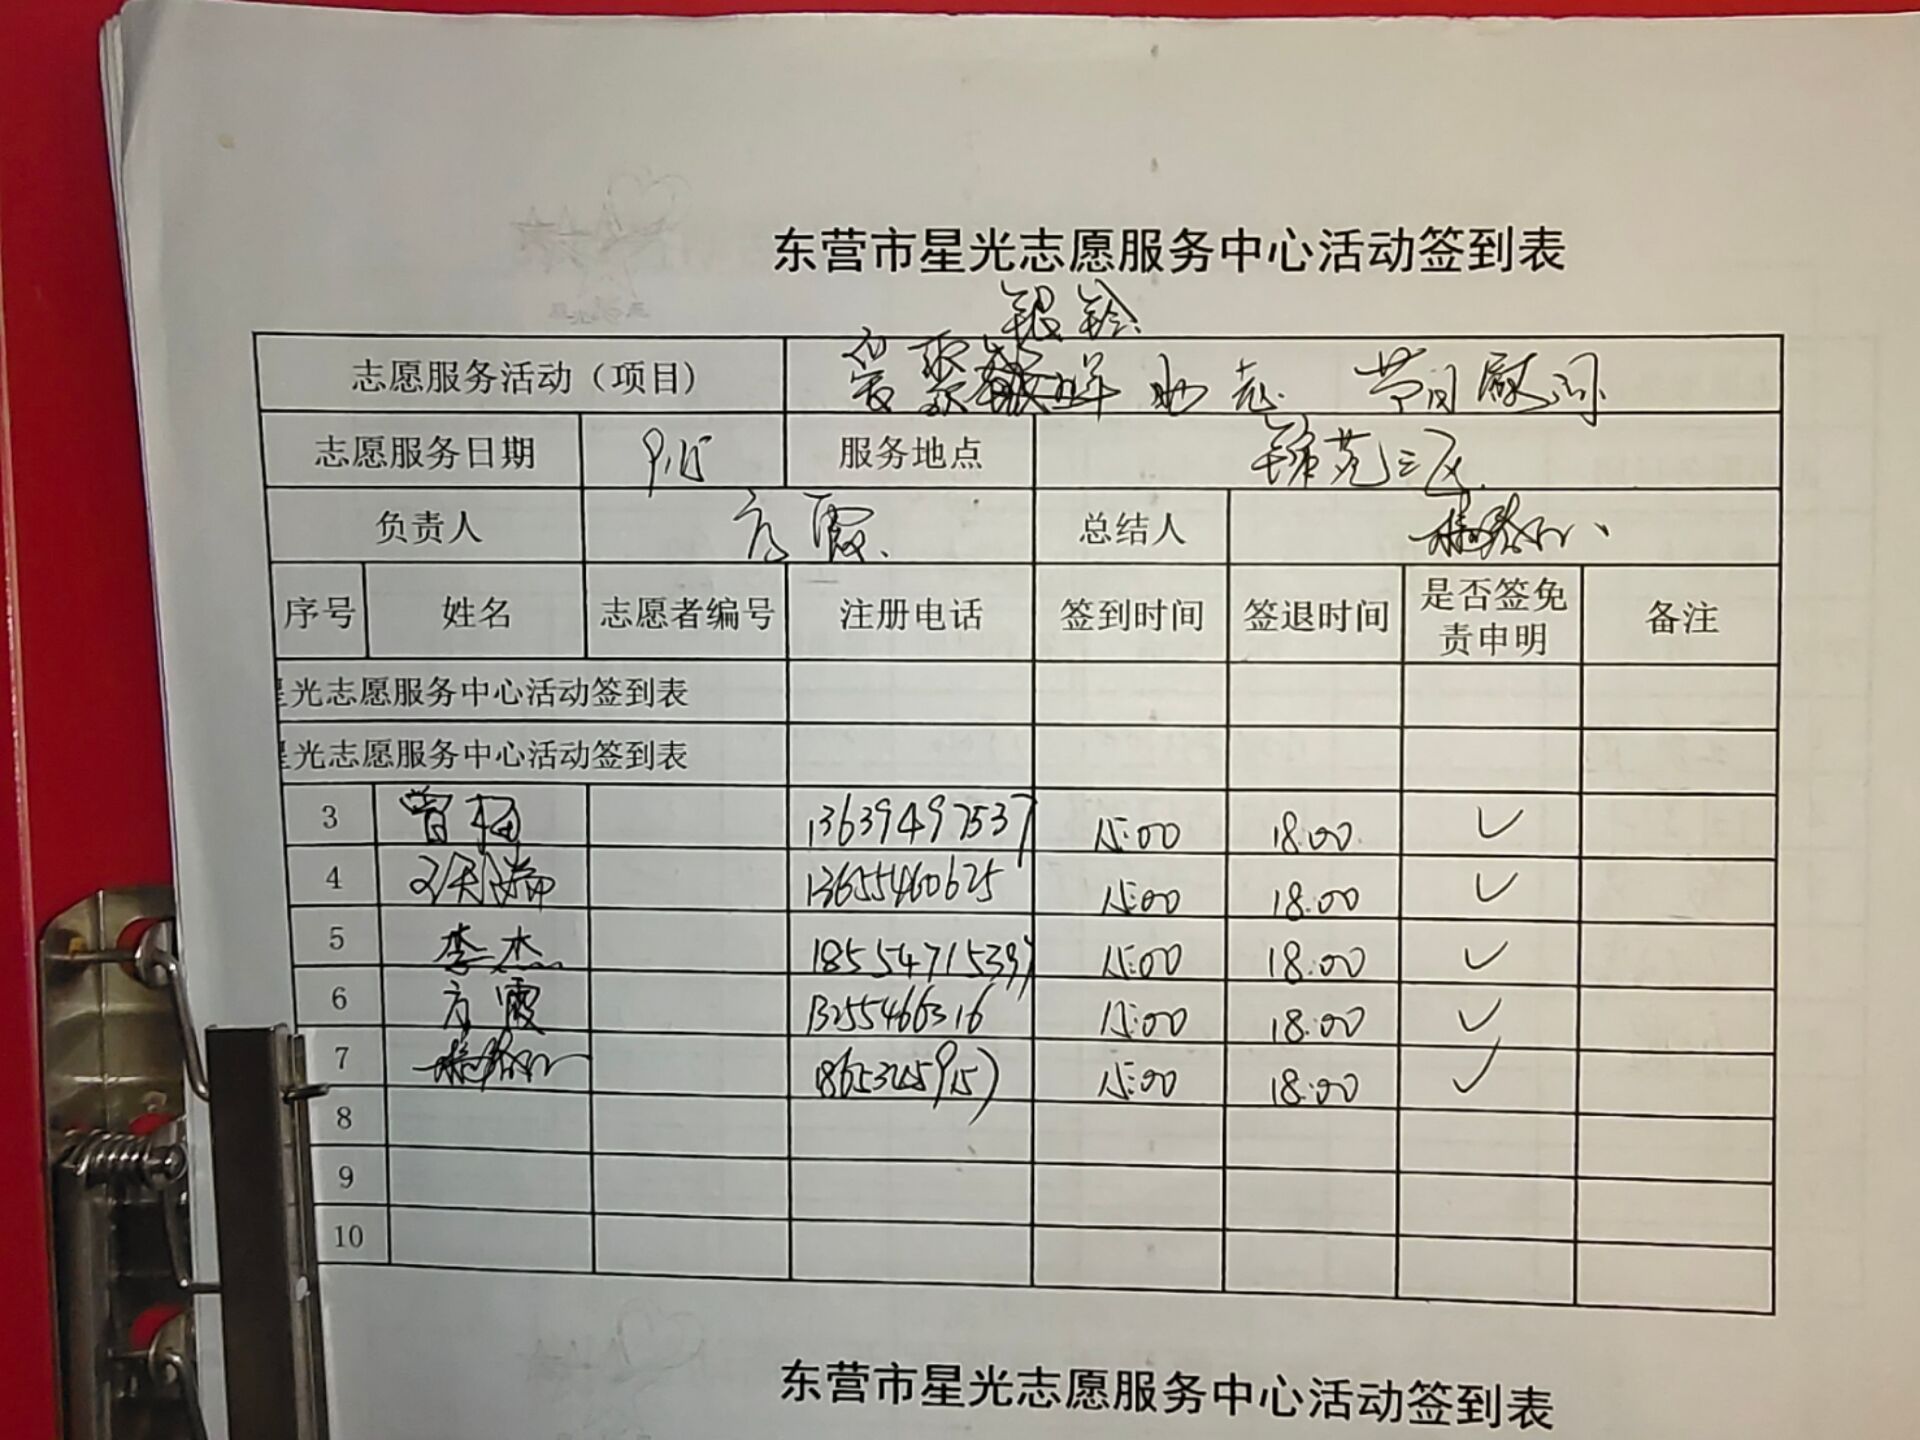 东营市星光志愿服务中心活动签到表
银铃
志愿服务活动（项目） 爱聚 助老 节日慰问
志愿服务日期 9.15 服务地点 三区
负责人 方霞 总结人
序号 姓名 志愿者编号 注册电话 签到时间 签退时间 是否签免责申明 备注
星光志愿服务中心活动签到表
星光志愿服务中心活动签到表
3 曾梅 13639497537 15:00 18:00 ✓
4 13655460625 15:00 18:00 ✓
5 李杰 18554715399 15:00 18:00 ✓
6 方霞 13255466316 15:00 18:00 ✓
7 15:00 18:00 ✓
8
9
10
东营市星光志愿服务中心活动签到表